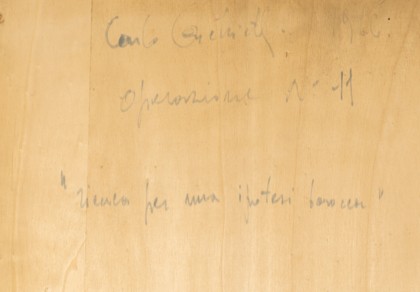 Carlo
Operazione N° 11
"ricerca per una ipotesi barocca"